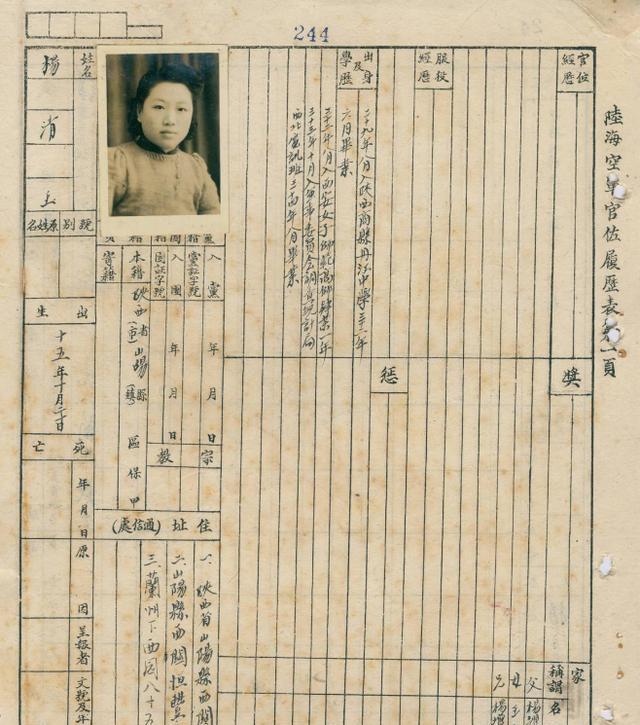 244
陸海空軍官佐履歷表第一頁
官位經歷
服役經歷
出身及學歷
二十九年八月入陝西商縣丹江中學三十一年
六月畢業
三十二年八月入西安女子師範
三十三年十月入軍事委員會調查統計局
西北 班三十四年八月畢業
獎
懲
家
稱謂
名
父 楊
母 王
兄 楊
姓名
楊
清
別號
原姓名
出生
十五年十月二十日
死亡
年月日
原因
呈報者
文號及年
入黨
年月日
黨證字號
入團
年月日
團證字號
籍
本籍
寄籍
陝西省(市)山陽縣(鎮)區保甲
宗教
住址(通信處)
一、陝西省山陽縣西關
二、山陽縣西關恒
三、蘭州下西園八十五